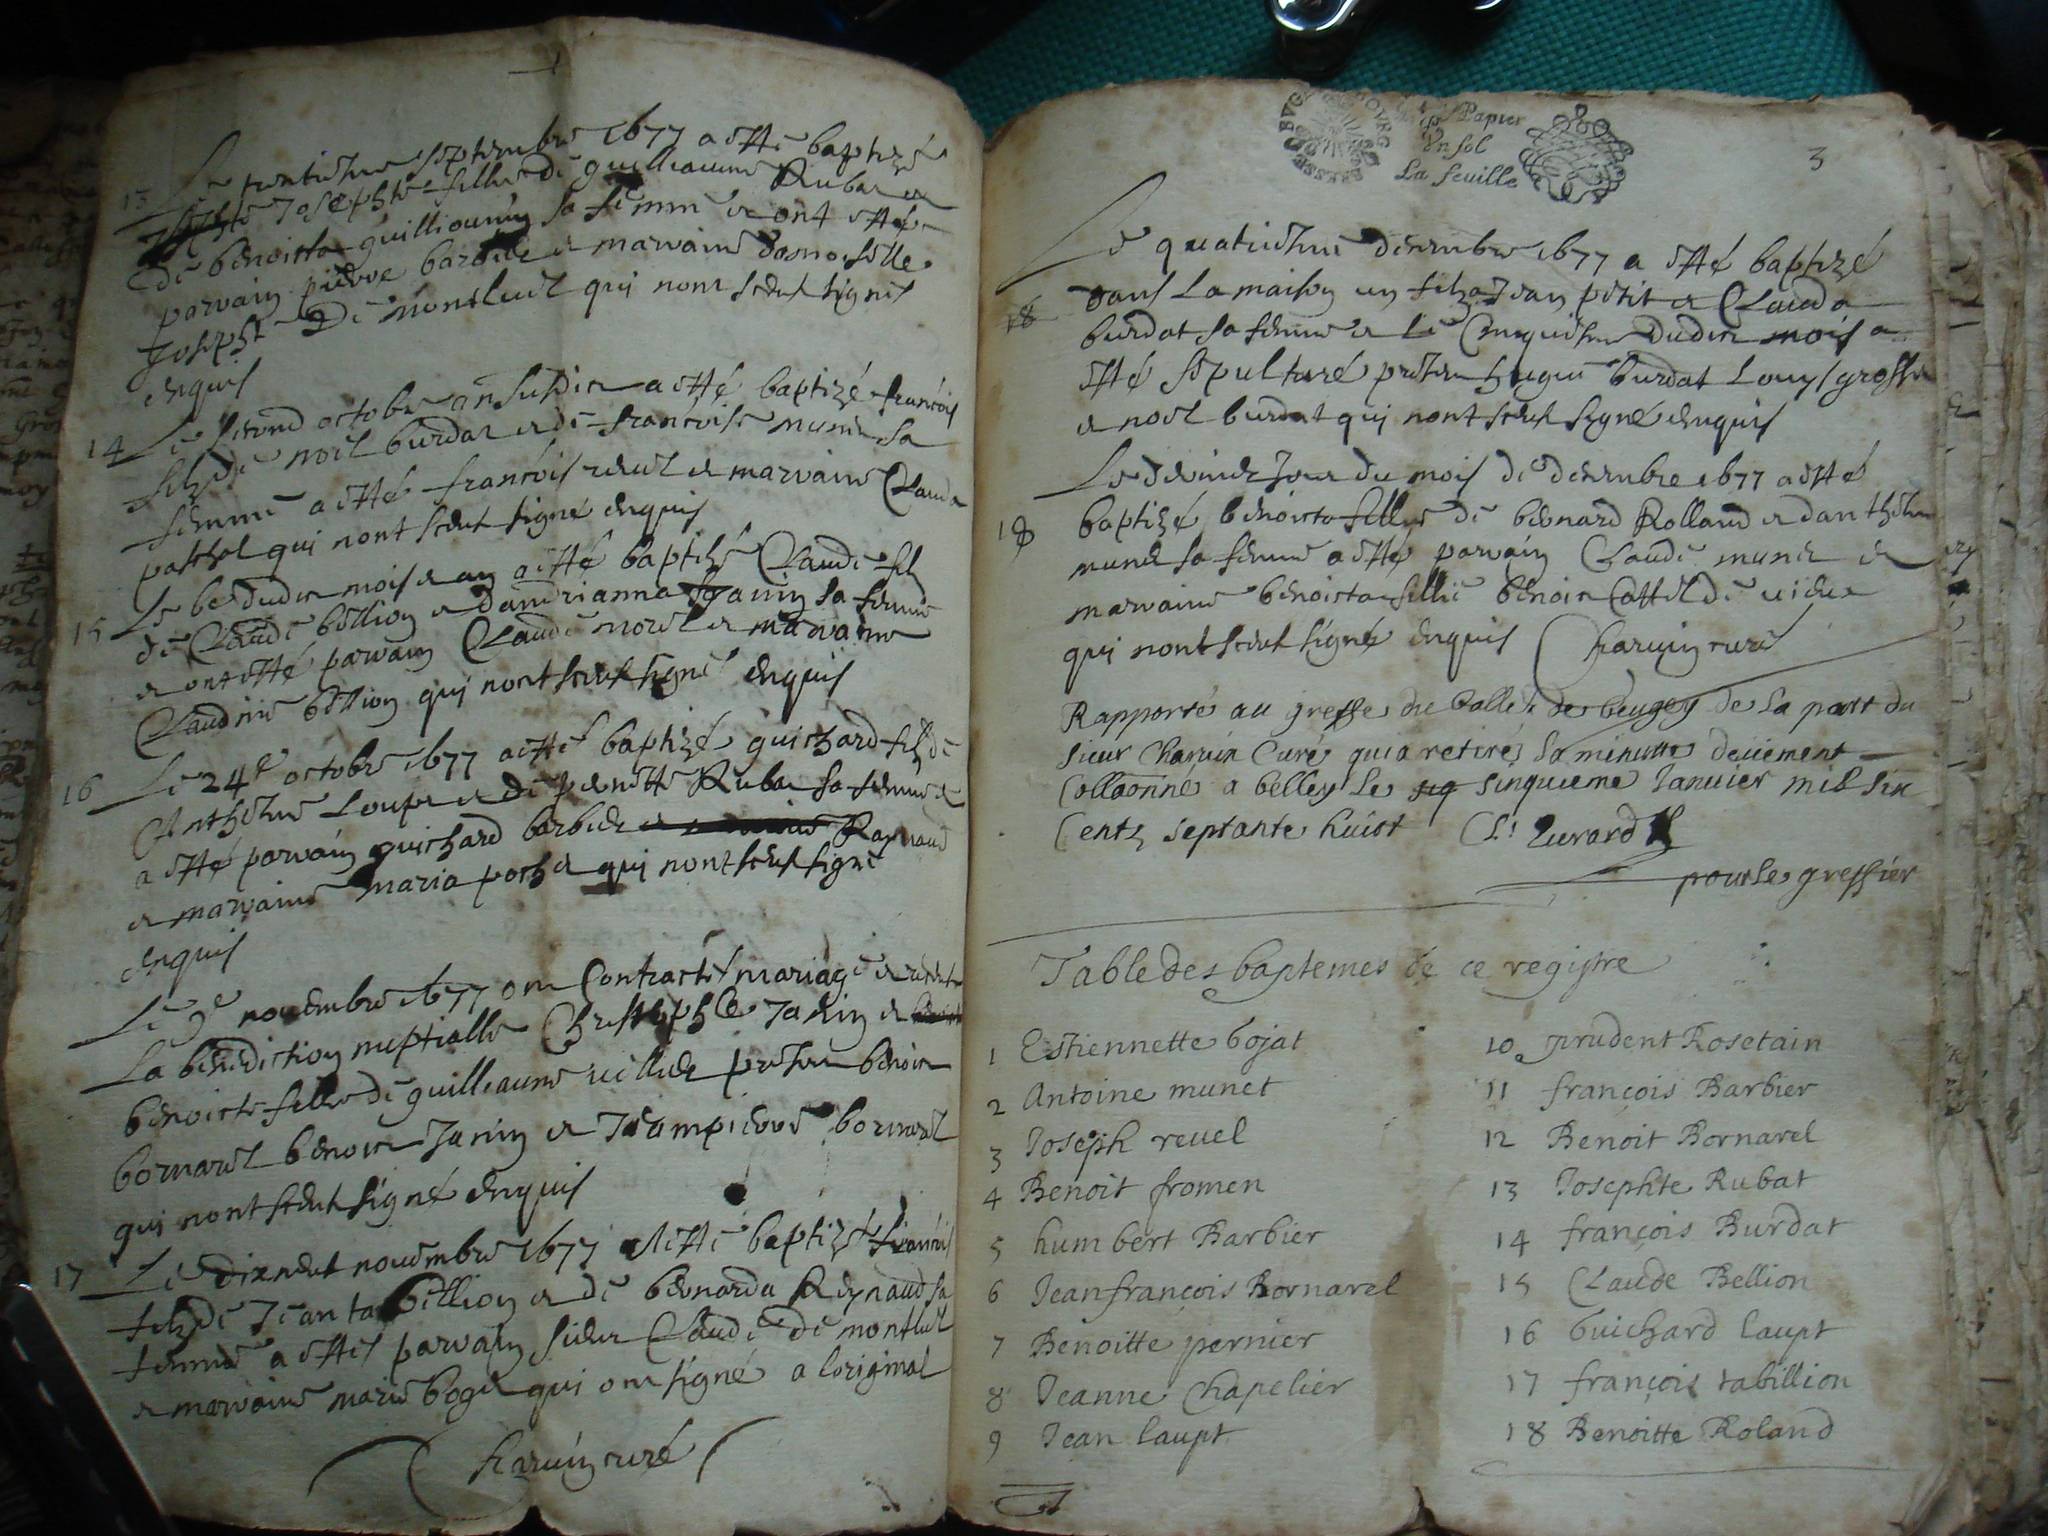 13 Le trentiesme septembre 1677 a esté baptizé
Josephte fillie de guilliaume Rubat et
de benoitta guilliounin sa femme et ont esté
parrain pierre barbier et marraine damoiselle
Josephe De montluel qui nont sceut signes
enquis
14 Le second octobre an susdict a esté baptizé francois
filz de noel burdat et de francoise munet sa
femme a esté francois revel et marraine Clauda
paschal qui nont sceut signé enquis
15 Le dudict mois et an a esté baptizé Claude filz
de Claude bellion et danvrianna Janin sa femme
et ont esté parrain Claude morel et marraine
Claudine bellion qui nont sceut signes enquis
16 Le 24e octobre 1677 a esté baptizé guichard filz de
Anthelme Loupt et de pernette Rubat sa femme
a esté parrain guichard barbier et Raynaud
et marraine maria pochet qui nont sceut signé
enquis
Le 9e novembre 1677 ont Contracté mariage et
La bénédiction nuptialle Christophle Janin et
benoicte fillie de guilliaume villier present benoict
bornarel benoict Janin et Jeampierre bornarel
qui nont sceut signé enquis
17 Le dixneuf novembre 1677 a esté baptizé francois
filz de Jean tabellion et de bernarda Reynaud sa
femme a estes parrain sieur Claude de montluel
et marraine marie boget qui ont signé a loriginal
Charvin curé
BVG BOVRG
Papier
Un sol
La feuille
3
Le quatriesme décembre 1677 a esté baptizé
dans La maison un filz a Jean petit et Clauda
18 burdat sa femme et Le Cinquiesme dudict mois a
esté sépulturé présent hugue burdat Louys grosse
et noel burdat qui nont sceut signé enquis
Le dernier Jour du mois de décembre 1677 a esté
18 baptizé benoicta fillie de bernard Rolland et danthelma
munet sa femme a esté parrain Claude munet et
marraine benoicta fillie benoict Cattel de vieux
qui nont sceut signé enquis Charvin curé
Rapporté au greffe du balle de beugey de la part du
sieur Charvin Curé qui a retiré la minutte deüement
Collaonné a belley le sinquieme Janvier mil six
Centz septante huict
pour le greffier
Table des baptemes de ce registre
1 Estiennette bojat
2 Antoine munet
3 Joseph revel
4 Benoit fromen
5 humbert Barbier
6 Jeanfrançois Bornarel
7 Benoitte pernier
8 Jeanne Chapelier
9 Jean laupt
10 prudent Rosetain
11 françois Barbier
12 Benoit Bornarel
13 Josephte Rubat
14 françois Burdat
15 Claude Bellion
16 Guichard laupt
17 françois tabillion
18 Benoitte Roland